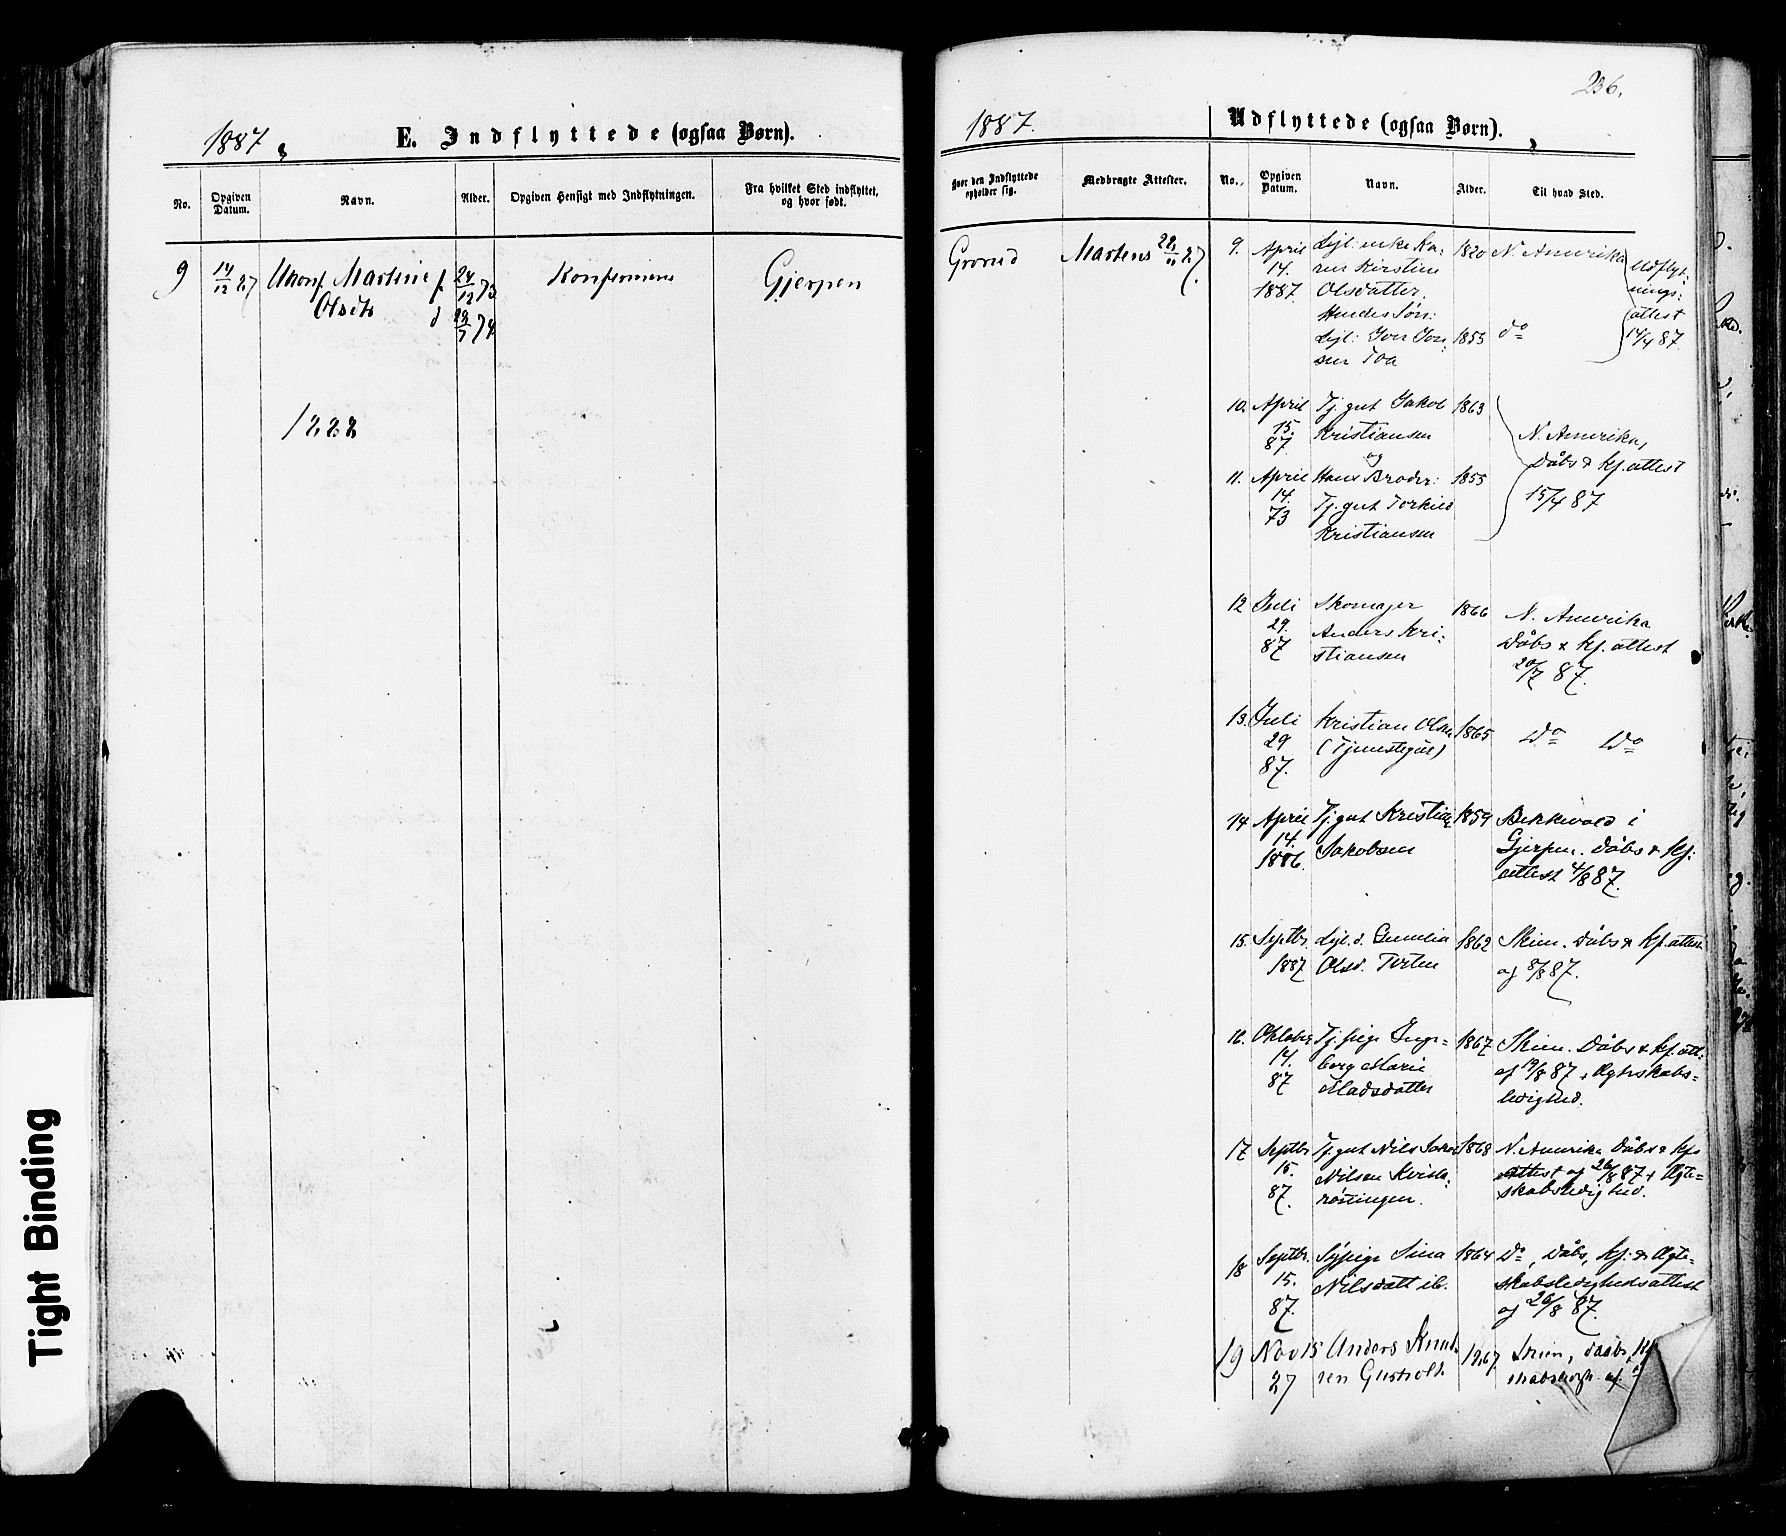 1887.
E. Indflyttede (ogsaa Børn).
No.
Opgiven Datum.
Navn.
Alder.
Opgiven Hensigt med Indflytningen.
Fra hvilket Sted indflyttet, og hvor født.
9 14/12 87 Ukonf. Martine f. 24/12 73 Konfermeres Gjerpen
Olsdtr d
1888
236.
1887.
Udflyttede (ogsaa Børn).
Hvor den Indflyttede opholder sig.
Medbragte Attester.
No.
Opgiven Datum.
Navn.
Alder.
Til hvad Sted.
Grorud
9. April Lejl: enke Ka: 1820 N. Amerika Udflyt:
14. ren Kirstine nings:
1887. Olsdatter. attest
Hendes Søn: 14/4 87.
Lejl: Jon Jon: 1855 do
sen Toa
10. April Tj. gut Jakob 1863
15. Kristiansen N. Amerika,
87 og Dåbs & kf. attest
11. April Hans Broder: 1855
14. Tj. gut Torkild 15/4 87
73 Kristiansen
12 Juli Skomager 1866 N. Amerika
29. Anders Kri: Dåbs & kf. attest
87 stiansen 20/7 87.
13. Juli Kristian Olsen 1865 Do Do
29 (Tjenestegut)
87.
14 April Tj. gut Kristian 1859 Bekkevold i
14. Jakobsen Gjerpen. Dåbs & kf:
1886. attest 4/8 87.
15. Septbr. Lejl. d. Gunelia 1862 Skien. Dåbs & kf. attest
1887 Olsd. af 8/8 87.
16. Oktober Tj. pige Inge= 1867 Skien. Dåbs & kf. att.
14. borg Marie af 19/8 87 & Ægteskabs=
87 Madsdatter ledighed.
17 Septbr Tj. gut Nils 1868 N. Amerika Dåbs & kf.
15. Nilsen attest af 26/8 87 & Ægte=
87. skabsledighed.
18 Septbr. Sypige Sina 1864 Do, Dåbs, kf: & Ægte=
15. Nilsdatt ib. skabsledighedsattest
87. af 26/8 87.
19 Nov 15 Anders Knud 1867. Skien, Daabs, kf
87 sen
Tight Binding